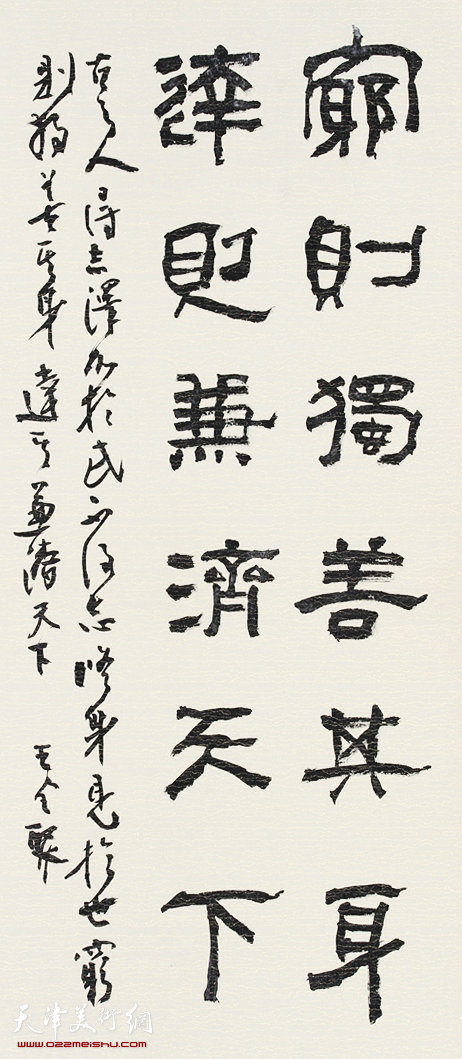 窮則獨善其身
達則兼濟天下
古之人得志澤加於民不得志脩身見於世窮
則獨善其身達則兼濟天下 王全聚
天津美術網
www.022meishu.com